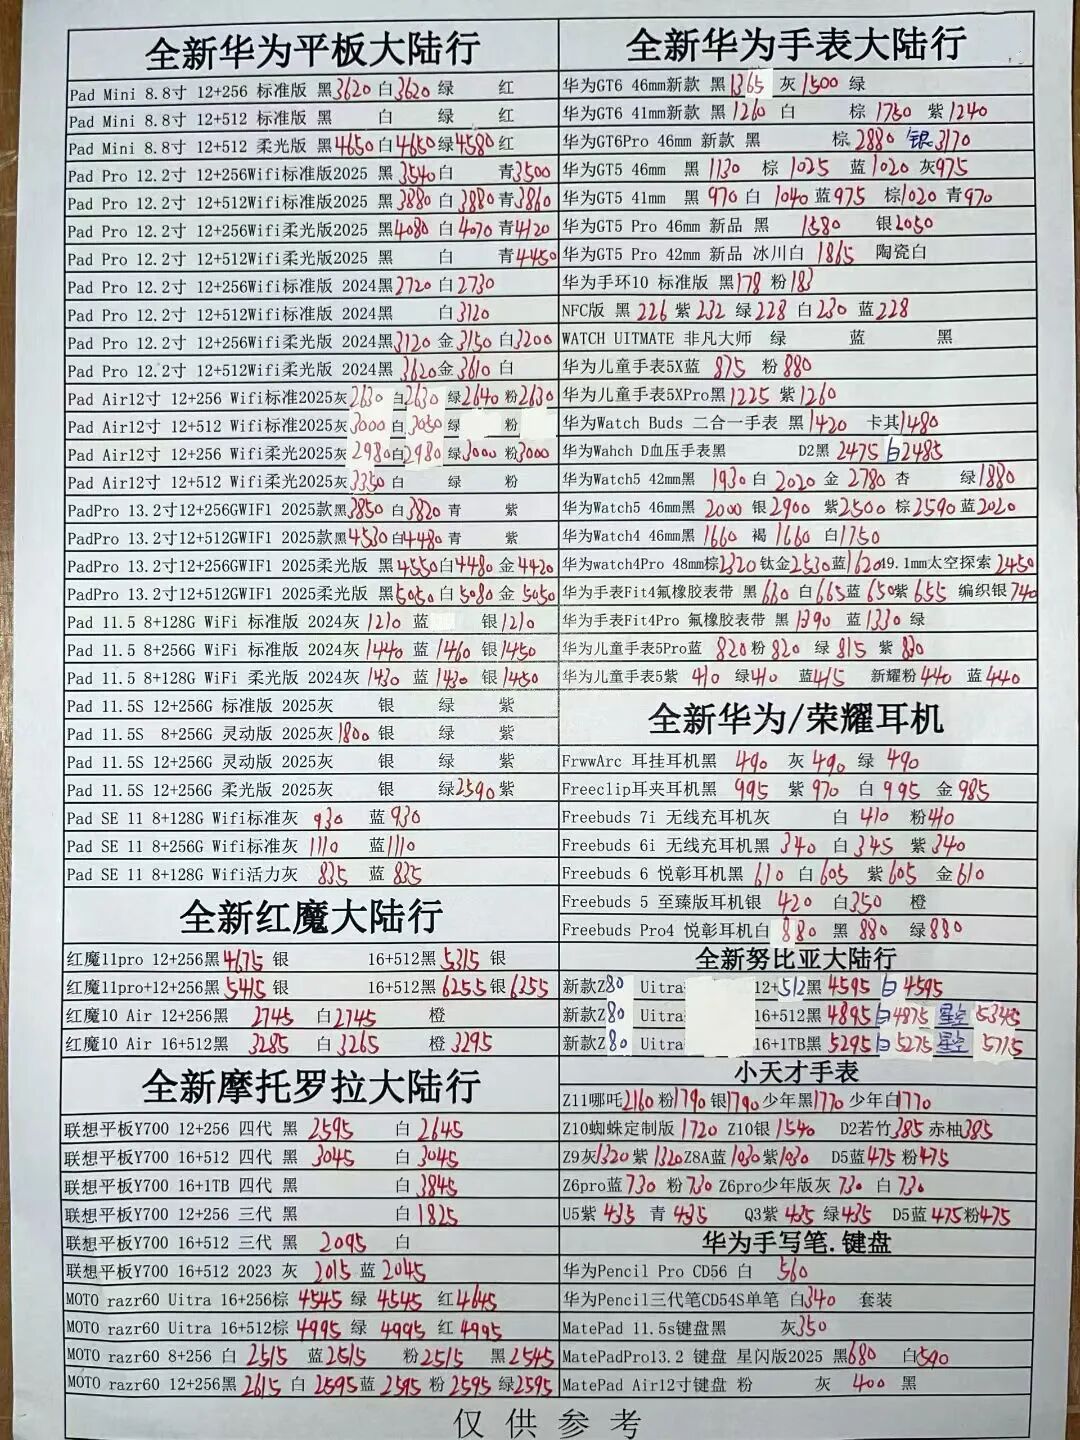 全新华为平板大陆行
Pad Mini 8.8寸 12+256 标准版 黑3620 白3620 绿 红
Pad Mini 8.8寸 12+512 标准版 黑 白 绿 红
Pad Mini 8.8寸 12+512 柔光版 黑4650 白4650 绿4580 红
Pad Pro 12.2寸 12+256Wifi标准版2025 黑3540 白 青3500
Pad Pro 12.2寸 12+512Wifi标准版2025 黑3880 白3880 青3860
Pad Pro 12.2寸 12+256Wifi柔光版2025 黑4080 白4070 青4120
Pad Pro 12.2寸 12+512Wifi柔光版2025 黑 白 青4450
Pad Pro 12.2寸 12+256Wifi标准版 2024黑2720 白2730
Pad Pro 12.2寸 12+512Wifi标准版 2024黑 白3120
Pad Pro 12.2寸 12+256Wifi柔光版 2024黑3120 金3150 白3200
Pad Pro 12.2寸 12+512Wifi柔光版 2024黑3620 金3610 白
Pad Air12寸 12+256 Wifi标准2025灰2630 白2630 绿2640 粉2630
Pad Air12寸 12+512 Wifi标准2025灰3000 白3050 绿 粉
Pad Air12寸 12+256 Wifi柔光2025灰2980 白2980 绿3000 粉3000
Pad Air12寸 12+512 Wifi柔光2025灰3350 白 绿 粉
PadPro 13.2寸12+256GWIF1 2025款黑3850 白3820 青 紫
PadPro 13.2寸12+512GWIF1 2025款黑4530 白4480 青 紫
PadPro 13.2寸12+256GWIF1 2025柔光版 黑4550 白4480 金4420
PadPro 13.2寸12+512GWIF1 2025柔光版 黑5050 白5080 金5050
Pad 11.5 8+128G WiFi 标准版 2024灰 1210 蓝 银1210
Pad 11.5 8+256G WiFi 标准版 2024灰 1440 蓝 1460 银1450
Pad 11.5 8+128G WiFi 柔光版 2024灰 1430 蓝 1430 银1450
Pad 11.5S 12+256G 标准版 2025灰 银 绿 紫
Pad 11.5S 8+256G 灵动版 2025灰1800 银 绿 紫
Pad 11.5S 12+256G 灵动版 2025灰 银 绿 紫
Pad 11.5S 12+256G 柔光版 2025灰 银 绿2590 紫
Pad SE 11 8+128G Wifi标准灰 930 蓝 930
Pad SE 11 8+256G Wifi标准灰 1110 蓝1110
Pad SE 11 8+128G Wifi活力灰 835 蓝 835
全新红魔大陆行
红魔11pro 12+256黑4675 银 16+512黑5315 银
红魔11pro+12+256黑5415 银 16+512黑6255 银6255
红魔10 Air 12+256黑 2745 白2745 橙
红魔10 Air 16+512黑 3285 白3265 橙3295
全新摩托罗拉大陆行
联想平板Y700 12+256 四代 黑 2595 白 2645
联想平板Y700 16+512 四代 黑 3045 白 3045
联想平板Y700 16+1TB 四代 黑 白 3845
联想平板Y700 12+256 三代 黑 白 1825
联想平板Y700 16+512 三代 黑 2095 白
联想平板Y700 16+512 2023 灰 2015 蓝 2045
MOTO razr60 Uitra 16+256棕 4545 绿 4545 红4645
MOTO razr60 Uitra 16+512棕 4995 绿 4995 红4995
MOTO razr60 8+256 白 2515 蓝2515 粉2515 黑2545
MOTO razr60 12+256黑 2615 白 2595 蓝 2595 粉 2595 绿2595
全新华为手表大陆行
华为GT6 46mm新款 黑1365 灰1500 绿
华为GT6 41mm新款 黑1260 白 棕 1750 紫1240
华为GT6Pro 46mm 新款 黑 棕2880 银3170
华为GT5 46mm 黑 1130 棕 1025 蓝1020 灰975
华为GT5 41mm 黑 970 白 1040 蓝975 棕1020 青970
华为GT5 Pro 46mm 新品 黑 1580 银2050
华为GT5 Pro 42mm 新品 冰川白 1865 陶瓷白
华为手环10 标准版 黑178 粉183
NFC版 黑 226 紫 232 绿228 白230 蓝228
WATCH UITMATE 非凡大师 绿 蓝 黑
华为儿童手表5X蓝 875 粉880
华为儿童手表5XPro黑1225 紫1260
华为Watch Buds 二合一手表 黑1420 卡其1480
华为Wahch D血压手表黑 D2黑 2475 白2485
华为Watch5 42mm黑 1930 白 2020 金 2780 杏 绿1880
华为Watch5 46mm黑 2000 银2900 紫2500 棕2590 蓝2020
华为Watch4 46mm黑1660 褐 1660 白1750
华为watch4Pro 48mm棕2320 钛金2530 蓝1620 49.1mm太空探索 2450
华为手表Fit4氟橡胶表带 黑 630 白665 蓝 650 紫 655 编织银740
华为手表Fit4Pro 氟橡胶表带 黑 1390 蓝1330 绿
华为儿童手表5Pro蓝 820 粉820 绿 815 紫 830
华为儿童手表5紫 410 绿410 蓝415 新耀粉440 蓝440
全新华为/荣耀耳机
FrwwArc 耳挂耳机黑 490 灰490 绿 490
Freeclip耳夹耳机黑 995 紫970 白 995 金985
Freebuds 7i 无线充耳机灰 白 410 粉410
Freebuds 6i 无线充耳机黑 340 白345 紫340
Freebuds 6 悦彰耳机黑 610 白605 紫605 金610
Freebuds 5 至臻版耳机银 420 白350 橙
Freebuds Pro4 悦彰耳机白 880 黑 880 绿880
全新努比亚大陆行
新款Z80 Uitra 12+512黑 4595 白4595
新款Z80 Uitra 16+512黑4895 白4875 星空 5345
新款Z80 Uitra 16+1TB黑5295 白5275 星空 5715
小天才手表
Z11哪吒2160 粉1790 银1790 少年黑1770 少年白1770
Z10蜘蛛定制版 1720 Z10银1540 D2若竹385 赤柚385
Z9灰1320 紫1320 Z8A蓝1030 紫1030 D5蓝475 粉475
Z6pro蓝730 粉730 Z6pro少年版灰 730 白730
U5紫 435 青 435 Q3紫435 绿435 D5蓝475 粉475
华为手写笔.键盘
华为Pencil Pro CD56 白 560
华为Pencil三代笔CD54S单笔 白340 套装
MatePad 11.5s键盘黑 灰350
MatePadPro13.2 键盘 星闪版2025 黑680 白590
MatePad Air12寸键盘 粉 灰 400 黑
仅供参考